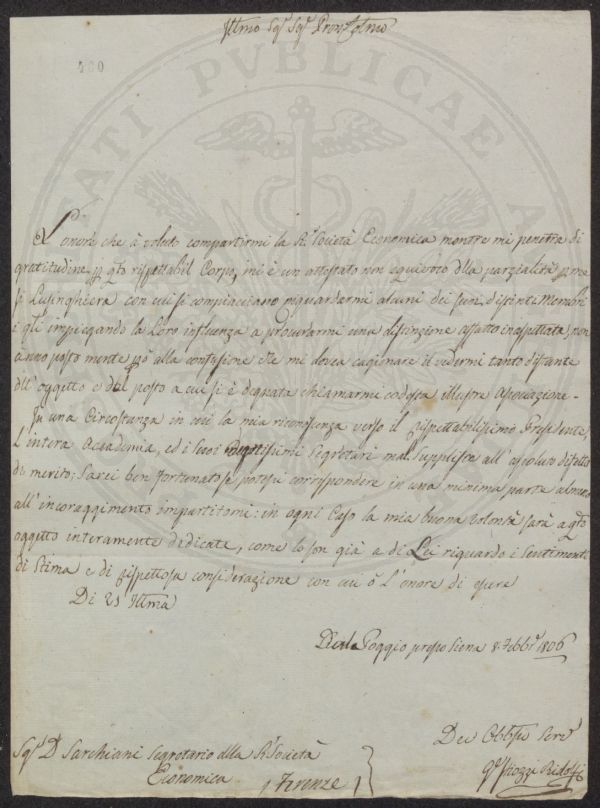 Illmo Sigr Sigr Pron Colmo
400
L'onore che à voluto compartirmi la Rl Società Economica mentre mi penetra di
gratitudine per qto rispettabil Corpo, mi è un attestato non equivoco della parzialità per me
sì Lusinghiera con cui si compiacciano riguardarmi alcuni dei suoi distinti Membri
i qli impiegando la Loro influenza a procurarmi una distinzione affatto inaspettata, non
anno posto mente però alla confusione che mi dovea cagionare il vedermi tanto distante
dall'oggetto e dal posto a cui si è degnata chiamarmi codesta illustre Associazione -
In una Circostanza in cui la mia riconoscenza verso il rispettabilissimo Presidente,
L'intera Accademia, ed i suoi degnissimi Segretari mal supplisce all'assoluto difetto
di merito; Sarei ben fortunato se potessi corrispondere in una minima parte almeno
all'incoraggimento impartitomi: in ogni Caso la mia buona volontà sarà a qto
oggetto interamente dedicata, come lo son già a di Lei riguardo i Sentimenti
di Stima e di rispettosa considerazione con cui ò L'onore di essere
Di VS Illma
Poggio presso Siena 8 Febbr 1806
Dev Obblmo Serv
Strozzi Ridolfi
Sigr Dr Sarchiani Segretario della Rl Società
Economica Firenze
ATI PUBLICAE